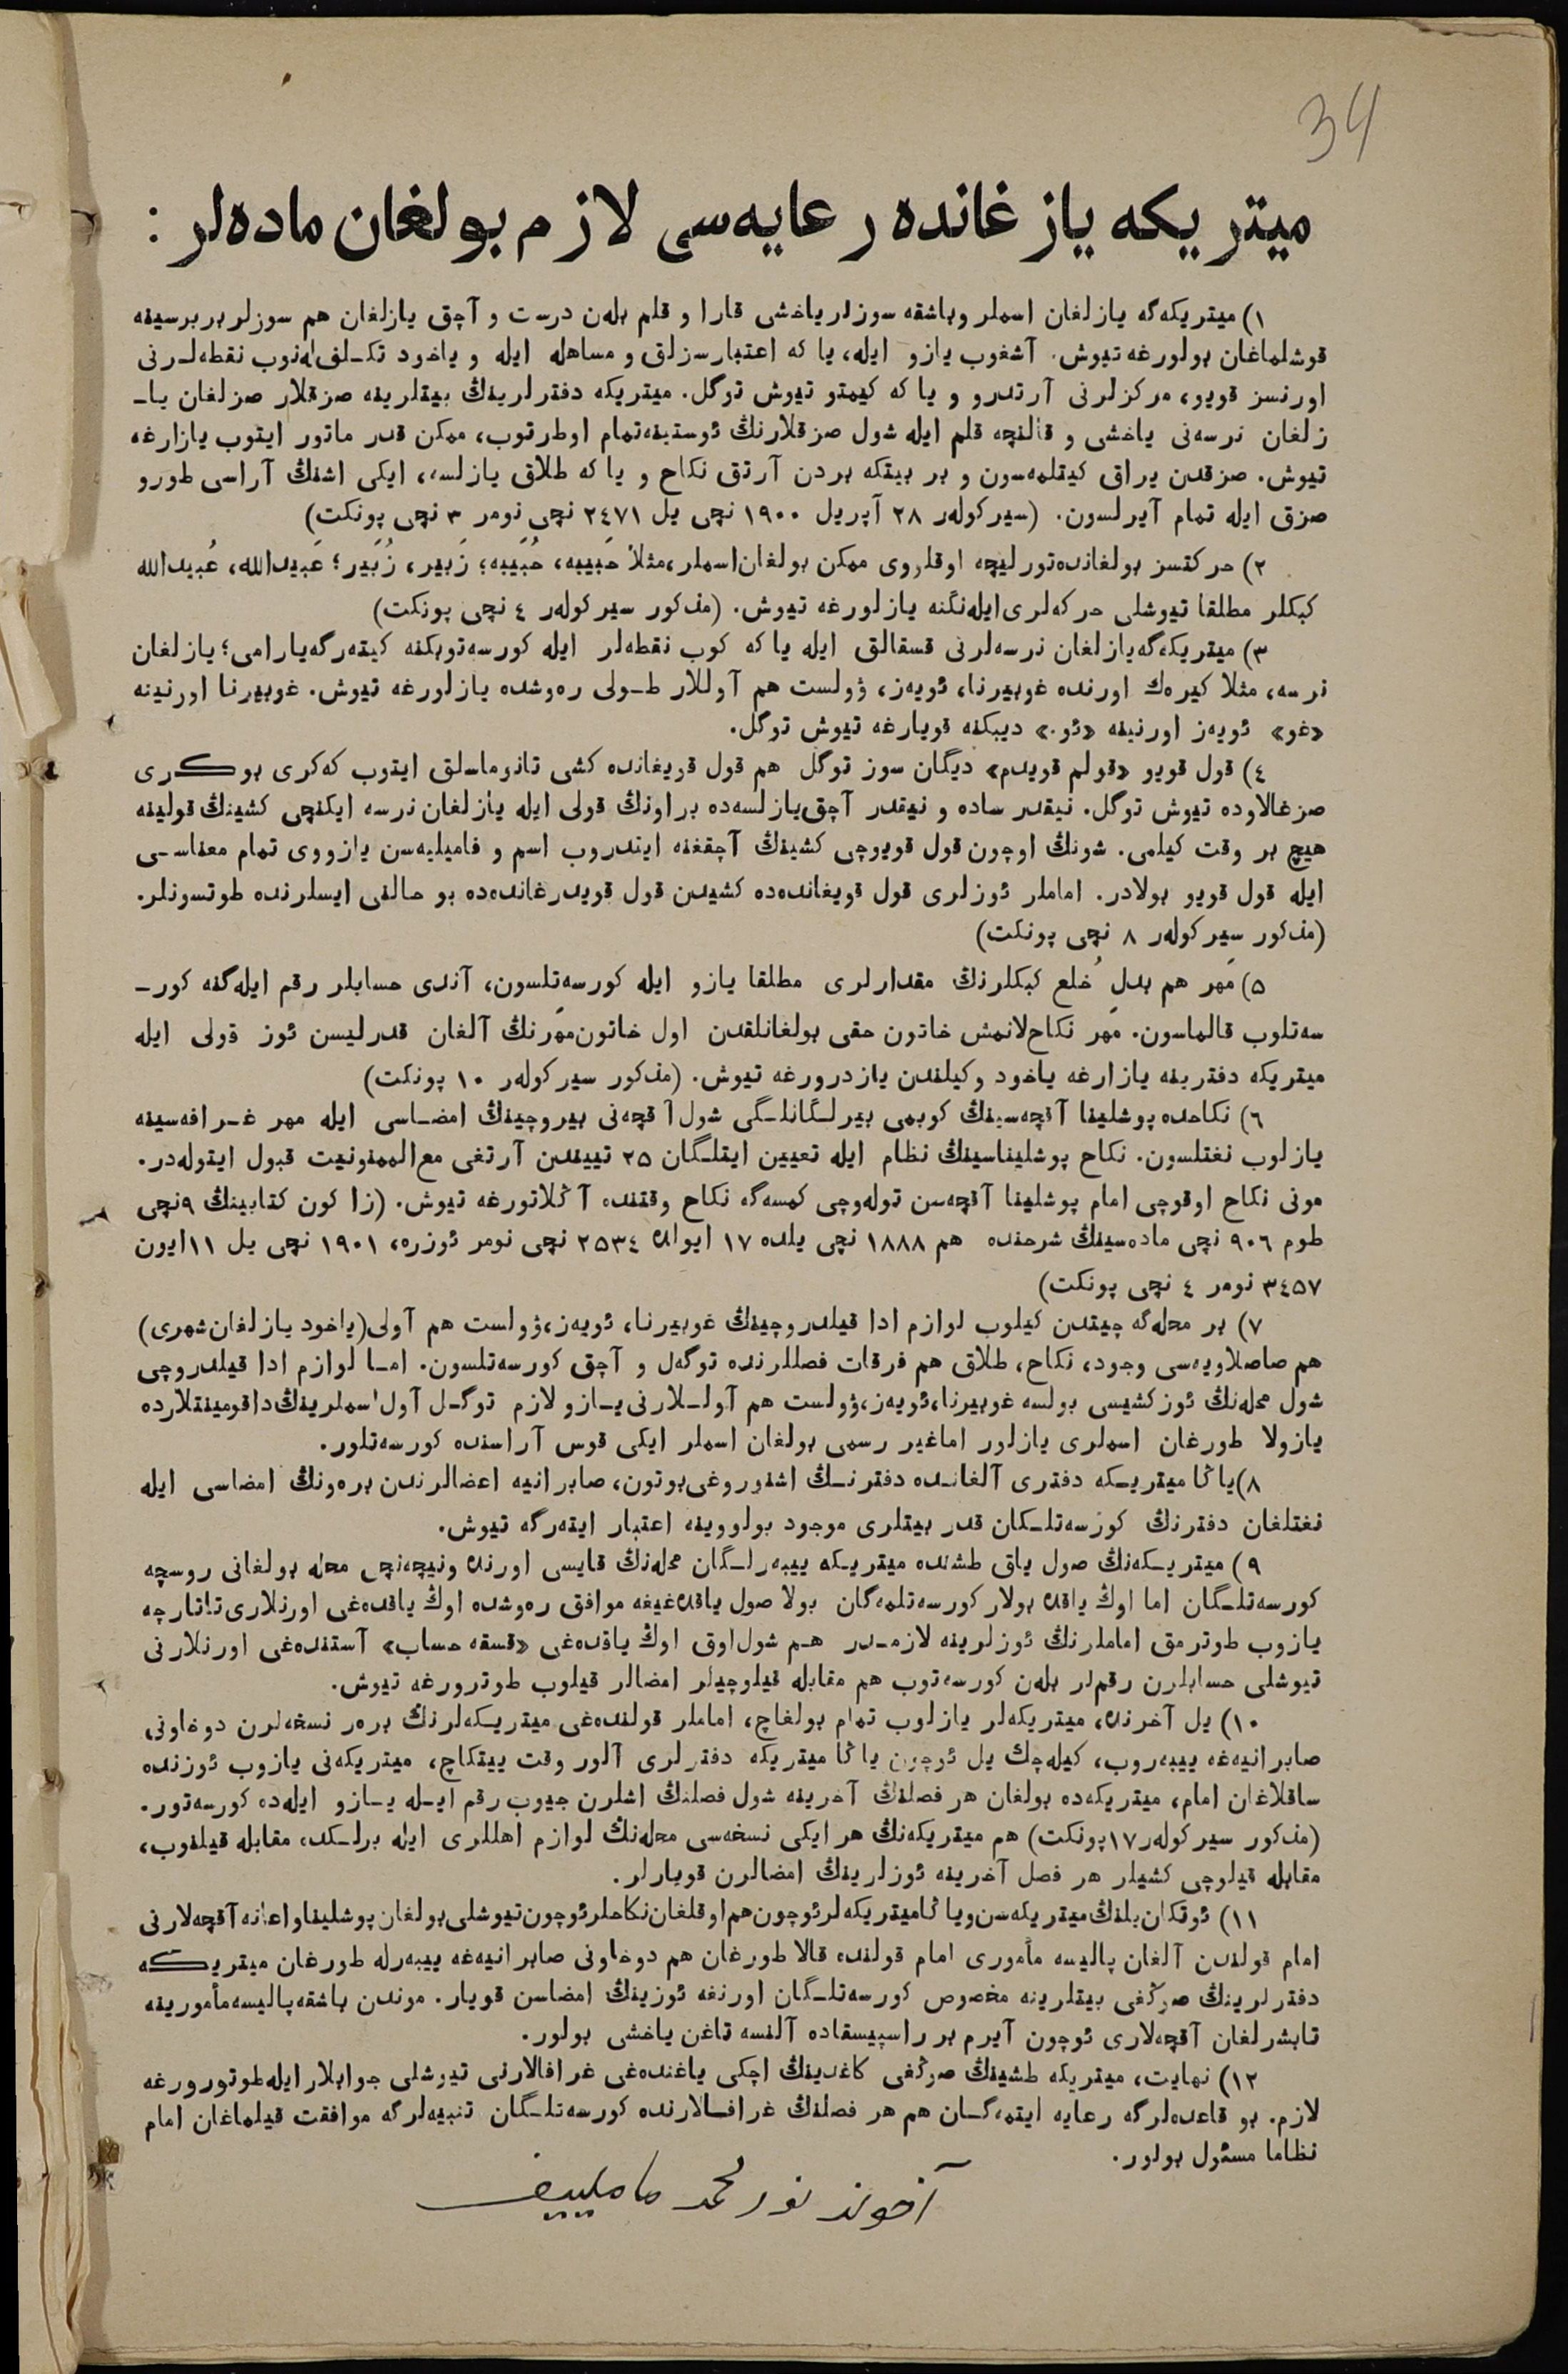 34
میتریکه یازغانده رعایه‌سی لازم بولغان ماده‌لر :
۱) میتریکه‌گه یازلغان اسملر وباشقه سوزلر یاخشی قارا و قلم بله‌ن درست و آچق یازلغان هم سوزلر بربرسینه
قوشلماغان بولورغه تیوش. آشغوب یازو ایله، یا که اعتبارسزلق و مساهله ایله و یاخود تکـلف له‌نوب نقطه‌لـرنی
اورنسز قویو، مرکزلرنی آرتدرو و یا که کیمتو تیوش توگل. میتریکه دفترلرینڭ بیتلرینه صزقلار صزلغان یا-
زلغان نرسه‌نی یاخشی و قالنچه قلم ایله شول صزقلارنڭ ئوستینه‌تمام اوطرتوب، ممکن قدر ماتور ایتوب یازارغه
تیوش. صزقدن یراق کیتلمه‌سون و بر بیتکه بردن آرتق نکاح و یا که طلاق یازلسه، ایکی اشنڭ آراسی طورو
صزق ایله تمام آیرلسون. (سیرکوله‌ر ۲۸ آپریل ۱۹۰۰ نچی یل ۲٤۷۱ نچی نومر ۳ نچی پونکت)
۲) حرکتسز بولغانده‌تورلیچه اوقلروی ممکن بولغان‌اسملر،مثلاً حَبیبه، حُبَیبه؛ زَبیر، زُبَیر؛ عَبیدالله، عُبیدالله
کبکلر مطلقا تیوشلی حرکه‌لری‌ایله‌نگنه یازلورغه تیوش. (مذکور سیرکوله‌ر ٤ نچی پونکت)
۳) میتریکه‌گه‌یازلغان نرسه‌لرنی قسقالق ایله یا که کوب نقطه‌لر ایله کورسه‌توبکنه کیته‌رگه‌یارامی؛ یازلغان
نرسه، مثلا کیره‌ك اورنده غوبیرنا، ئویه‌ز، ۋولست هم آوللار طـولی ره‌وشده یازلورغه تیوش. غوبیرنا اورنینه
«غو» ئویه‌ز اورنینه «ئو.» دیبکنه قویارغه تیوش توگل.
٤) قول قویو «قولم قویدم» دیگان سوز توگل هم قول قویغانده کشی تانوماسلق ایتوب که‌کری بوکـری
صزغالاوده تیوش توگل. نیقدر ساده و نیقدر آچق‌یازلسه‌ده براونڭ قولی ایله یازلغان نرسه ایکنچی کشینڭ قولینه
هیچ بر وقت کیلمی. شونڭ اوچون قول قویوچی کشینڭ آچقغنه ایتدروب اسم و فامیلیه‌سن یازووی تمام معناسـی
ایله قول قویو بولادر. اماملر ئوزلری قول قویغانده‌ده کشیدن قول قویدرغانده‌ده بو حالنی ایسلرنده طوتسونلر.
(مذکور سیرکوله‌ر ۸ نچی پونکت)
۵) مَهر هم بدل خُلع کبکلرنڭ مقدارلری مطلقا یازو ایله کورسه‌تلسون، آندی حسابلر رقم ایله‌گنه کور-
سه‌تلوب قالماسون. مَهر نکاح‌لانمش خاتون حقی بولغانلقدن اول خاتون‌مهرنڭ آلغان قدرلیسن ئوز قولی ایله
میتریکه دفترینه یازارغه یاخود وکیلندن یازدرورغه تیوش. (مذکور سیرکوله‌ر ۱۰ پونکت)
٦) نکاحده پوشلینا آقچه‌سینڭ کوبمی بیرلـگانلـگی شول‌آقچه‌نی بیروچینڭ امضـاسی ایله مهر غـرافه‌سینه
یازلوب نغتلسون. نکاح پوشلیناسینڭ نظام ایله تعیین ایتلـگان ۲۵ تییندن آرتغی مع‌الممنونیت قبول ایتوله‌در.
مونی نکاح اوقوچی امام پوشلینا آقچه‌سن توله‌وچی کمسه‌گه نکاح وقتنده آڭلاتورغه تیوش. (زاکون کتابینڭ ۹نچی
طوم ۹۰٦ نچی ماده‌سینڭ شرحنده هم ۱۸۸۸ نچی یلده ۱۷ ایولده ۲۵۳٤ نچی نومر ئوزره، ۱۹۰۱ نچی یل ۱۱ایون
۳٤۵۷ نومر ٤ نچی پونکت)
۷) بر محله‌گه چیتدن کیلوب لوازم ادا قیلدروچینڭ غوبیرنا، ئویه‌ز،ۋولست هم آولی(یاخود یازلغان‌شهری)
هم صاصلاویه‌سی وجود، نکاح، طلاق هم فرقات فصللرنده توگه‌ل و آچق کورسه‌تلسون. امـا لوازم ادا قیلدروچی
شول محله‌نڭ ئوزکشیسی بولسه غوبیرنا،ئویه‌ز،ۋولست هم آولـلارنی یـازو لازم توگـل آول اسملرینڭ‌داقومینتلارده
یازولا طورغان اسملری یازلور اماغیر رسمی بولغان اسملر ایکی قوس آراسنده کورسه‌تلور.
۸)یاڭا میتریـکه دفتری آلغانـده دفترنـڭ اشنوروغی‌بوتون، صابرانیه اعضالرندن بره‌ونڭ امضاسی ایله
نغتلغان دفترنڭ کورسه‌تلـکان قدر بیتلری موجود بولووینه اعتبار ایته‌رگه تیوش.
۹) میتریـکه‌نڭ صول یاق طشنده میتریـکه ییبه‌رلـگان محله‌نڭ قایسی اورنده ونیچه‌نچی محله بولغانی روسچه
کورسه‌تلـگان اما اوڭ یاقده بولار کورسه‌تلمه‌گان بولا صول یاقده‌غیغه موافق ره‌وشده اوڭ یاقده‌غی اورنلاری‌تاتارچه
یازوب طوترمق اماملرنڭ ئوزلرینه لازمـدر هـم شول‌اوق اوڭ یاقده‌غی «قسقه حساب» آستنده‌غی اورنلارنی
تیوشلی حسابلرن رقم‌لر بله‌ن کورسه‌توب هم مقابله قیلوچیلر امضالر قیلوب طوترورغه تیوش.
۱۰) یل آخرنده، میتریکه‌لر یازلوب تمام بولغاچ، اماملر قولنده‌غی میتریـکه‌لرنڭ بره‌ر نسخه‌لرن دوخاونی
صابرانیه‌غه ییبه‌روب، کیله‌چك یل ئوچون یاڭا میتریکه دفترلری آلور وقت ییتکاچ، میتریکه‌نی یازوب ئوزنده
ساقلاغان امام، میتریکه‌ده بولغان هر فصلنڭ آخرینه شول فصلنڭ اشلرن جیوب رقم ایـله یـازو ایله‌ده کورسه‌تور.
(مذکور سیرکوله‌ر ۱۷پونکت) هم میتریکه‌نڭ هر ایکی نسخه‌سی محله‌نڭ لوازم اهللری ایله برلـکده مقابله قیلنوب،
مقابله قیلوچی کشیلر هر فصل آخرینه ئوزلرینڭ امضالرن قویارلر.
۱۱) ئوتکان‌یلنڭ‌میتریکه‌سن‌ویاڭامیتریکه‌لرئوچون‌هم‌اوقلغان‌نکاحلرئوچون‌تیوشلی‌بولغان‌پوشلیناواعانه‌آقچه‌لارنی
امام قولندن آلغان پالیسه مأموری امام قولنده قالا طورغان هم دوخاونی صابرانیه‌غه ییبه‌رله طورغان میتریـکه
دفترلرینڭ صوڭغی بیتلرینه مخصوص کورسه‌تلـگان اورنغه ئوزینڭ امضاسن قویار. موندن باشقه‌پالیسه‌مأمورینه
تابشرلغان آقچه‌لاری ئوچون آیرم بر راسپیسقاده آلنسه تاغن یاخشی بولور.
۱۲) نهایت، میتریکه طشینڭ صوڭغی کاغدینڭ اچکی یاغنده‌غی غرافالارنی تیوشلی جوابلار ایله‌طوتورورغه
لازم. بو قاعده‌لرگه رعایه ایتمه‌گـان هم هر فصلنڭ غرافـالارنده کورسه‌تلـگان تنبیه‌لرگه موافقت قیلماغان امام
نظاما مسئول بولور.
آخوند نورمحمد مامليیف